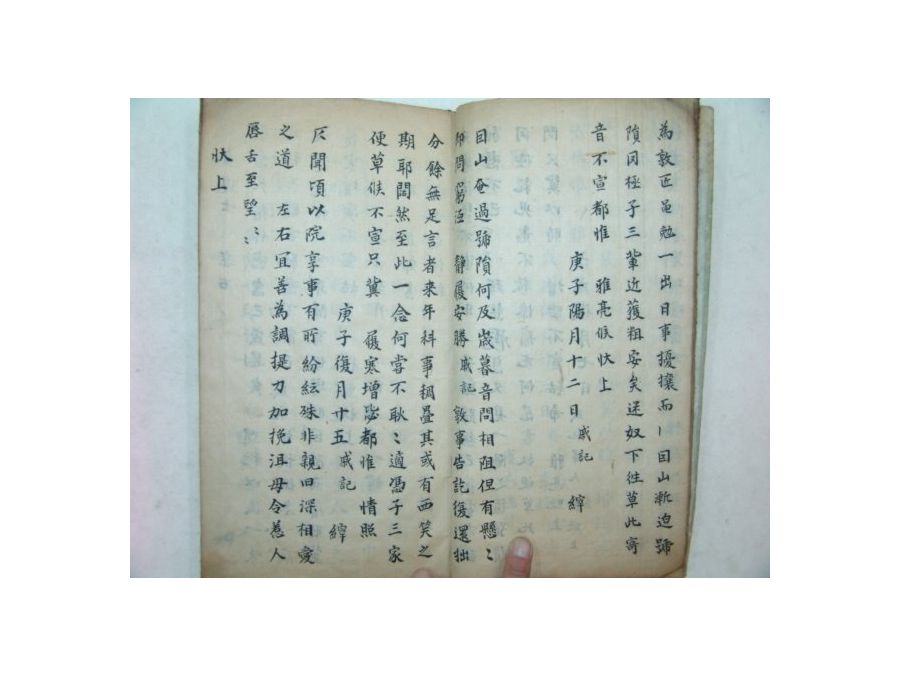 為敦匠虽勉一出日事擾攘而〻因山漸迫號
隕罔極子三輩近獲粗安矣迷奴下徃草此寄
音不宣都惟　雅亮候狀上
庚子陽月十二日　戚記　縡
因山奄過號隕何及歲暮音問相阻但有懸〻
即問窮沍　靜履安勝　戚記　敦事告訖復還拙
分餘無足言者来年科事稠疊其或有西笑之
期耶闊然至此一念何嘗不耿〻適憑子三家
便草候不宣只冀　履寒增毖都惟　情照
庚子復月廿五　戚記　縡
仄聞頃以院享事有所紛紜殊非親田深相愛
之道　左右宜善為調提刀加挽洱毋令惹人
唇舌至望〻
狀上